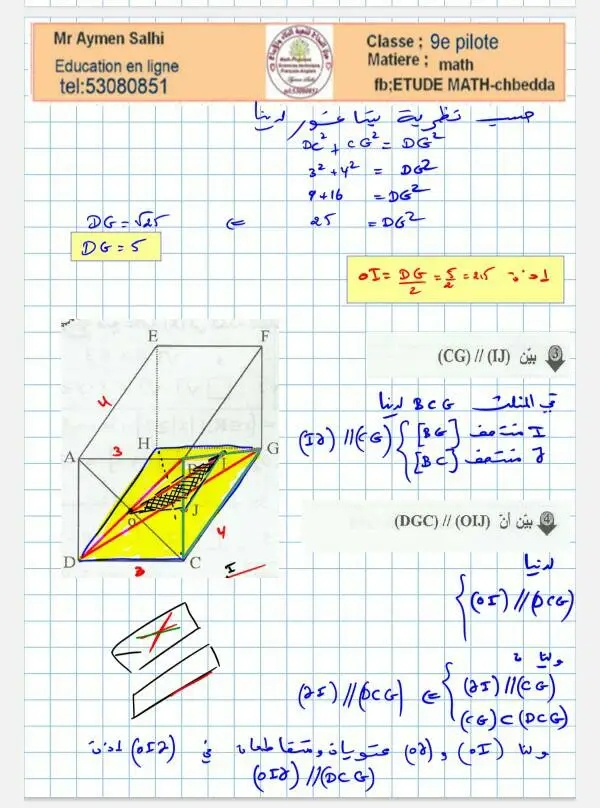 Mr Aymen Salhi
Education en ligne
tel:53080851
Classe ; 9e pilote
Matiere ; math
fb;ETUDE MATH-chbedda
حسب نظرية بيتاغور لدينا
DC² + CG² = DG²
3² + 4² = DG²
9 + 16 = DG²
25 = DG² ⇐ DG = √25
DG = 5
اذن OI = DG/2 = 5/2 = 2.5
3 بيّن (CG) // (IJ)
في المثلث BCG لدينا
I منتصف [BG]
J منتصف [BC]
(IJ) // (CG)
E F
H G
A 3 B I
4
O J
D 3 C
4
I
4 بيّن أنّ (DGC) // (OIJ)
لدينا
(OI) // (DCG)
ولنا
(JI) // (CG)
(CG) ⊂ (DCG)
⇒ (JI) // (DCG)
ولنا (OI) و (JO) محتويان ومتقاطعان في (OIJ) اذن
(OIJ) // (DCG)